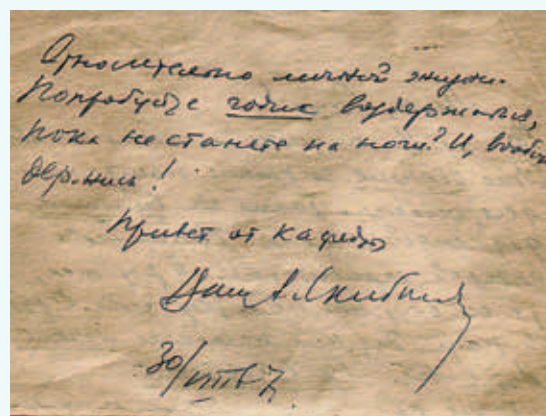 Относительно личной жизни.
Попробуйте годик воздержаться,
пока не станете на ноги? И, вообще
держись!
Привет от кафедры
Ваш А.
30/VIII